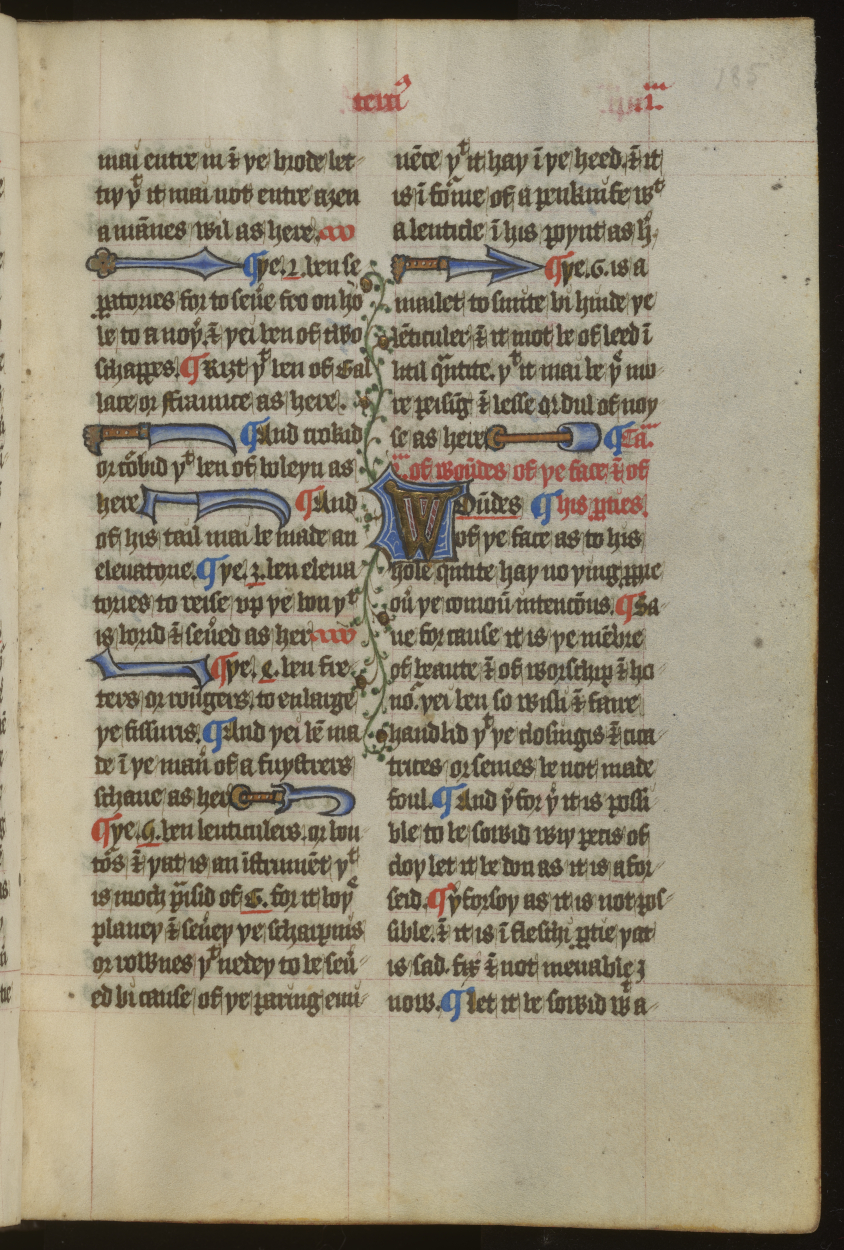 185
terciꝰ
iii.
mai entre in ⁊ ye brode let-
tiy yͭ it mai not entre aȝen
a mānes wil as here.
¶ye.2. ben se
paratories for to seūe fro on ho
le to a noyͬ. ⁊ yei ben of two
schappes. ¶Riȝt yͭ ben of Gal
lace or ffraunce as here.
¶And crokid
or cōbid yͭ ben of boleyn as
here ¶And
of his tail mai be made an
eleuatorie. ¶ye.3. ben eleua
tories to reise vp ye bon yͭ
is brisid ⁊ seūed as her
¶ye.4. ben fre-
ters or rūgers. to enlarge
ye fissuris. ¶And yei bē ma
de ī ye maner of a fuystrers
schaue as her
¶ye.5. ben lenticulers. or bou
tōs ⁊ yat is an īstrumēt yͭ
is moch preisid of G. for it boyͤ
planey ⁊ seūey ye scharpnis
or rownes yͭ nedey to be seū-
ed bi cause of ye paring eui-
nēce yͭ it hay ī ye heed. ⁊ it
is ī foͬme of a penknife wͭ
a lenticle ī his poynt as h̄.
¶ye.6. is a
mailet to smite bi hinde ye
lēticuler. ⁊ it mot be of leed ī
litil qntite. yͭ it mai be yͤ mo-
re peisīg ⁊ lesse or dul of noy
se as here ¶Ca.
i. of woūdes of ye face ⁊ of
Woūdes ¶his pties.
of ye face as to his
hole qntite hay no ying ppre
oū ye comoū intencōns. ¶Sa-
ue for cause it is ye mēbre
of beaute ⁊ of worschip ⁊ ho-
noͬ. yei ben so wisli ⁊ faire
handlid yͭ ye closingis ⁊ cica-
trices or semes be not made
foul. ¶And yͬfor yͬ it is possi
ble to be sowid wiy pecis of
cloy let it be don as it is afor-
seid. ¶yͬforsoy as it is not pos-
sible. ⁊ it is ī fleschi ptie yat
is sad. fix ⁊ not meuable ȝ
now. ¶let it be sowid wͭ a-